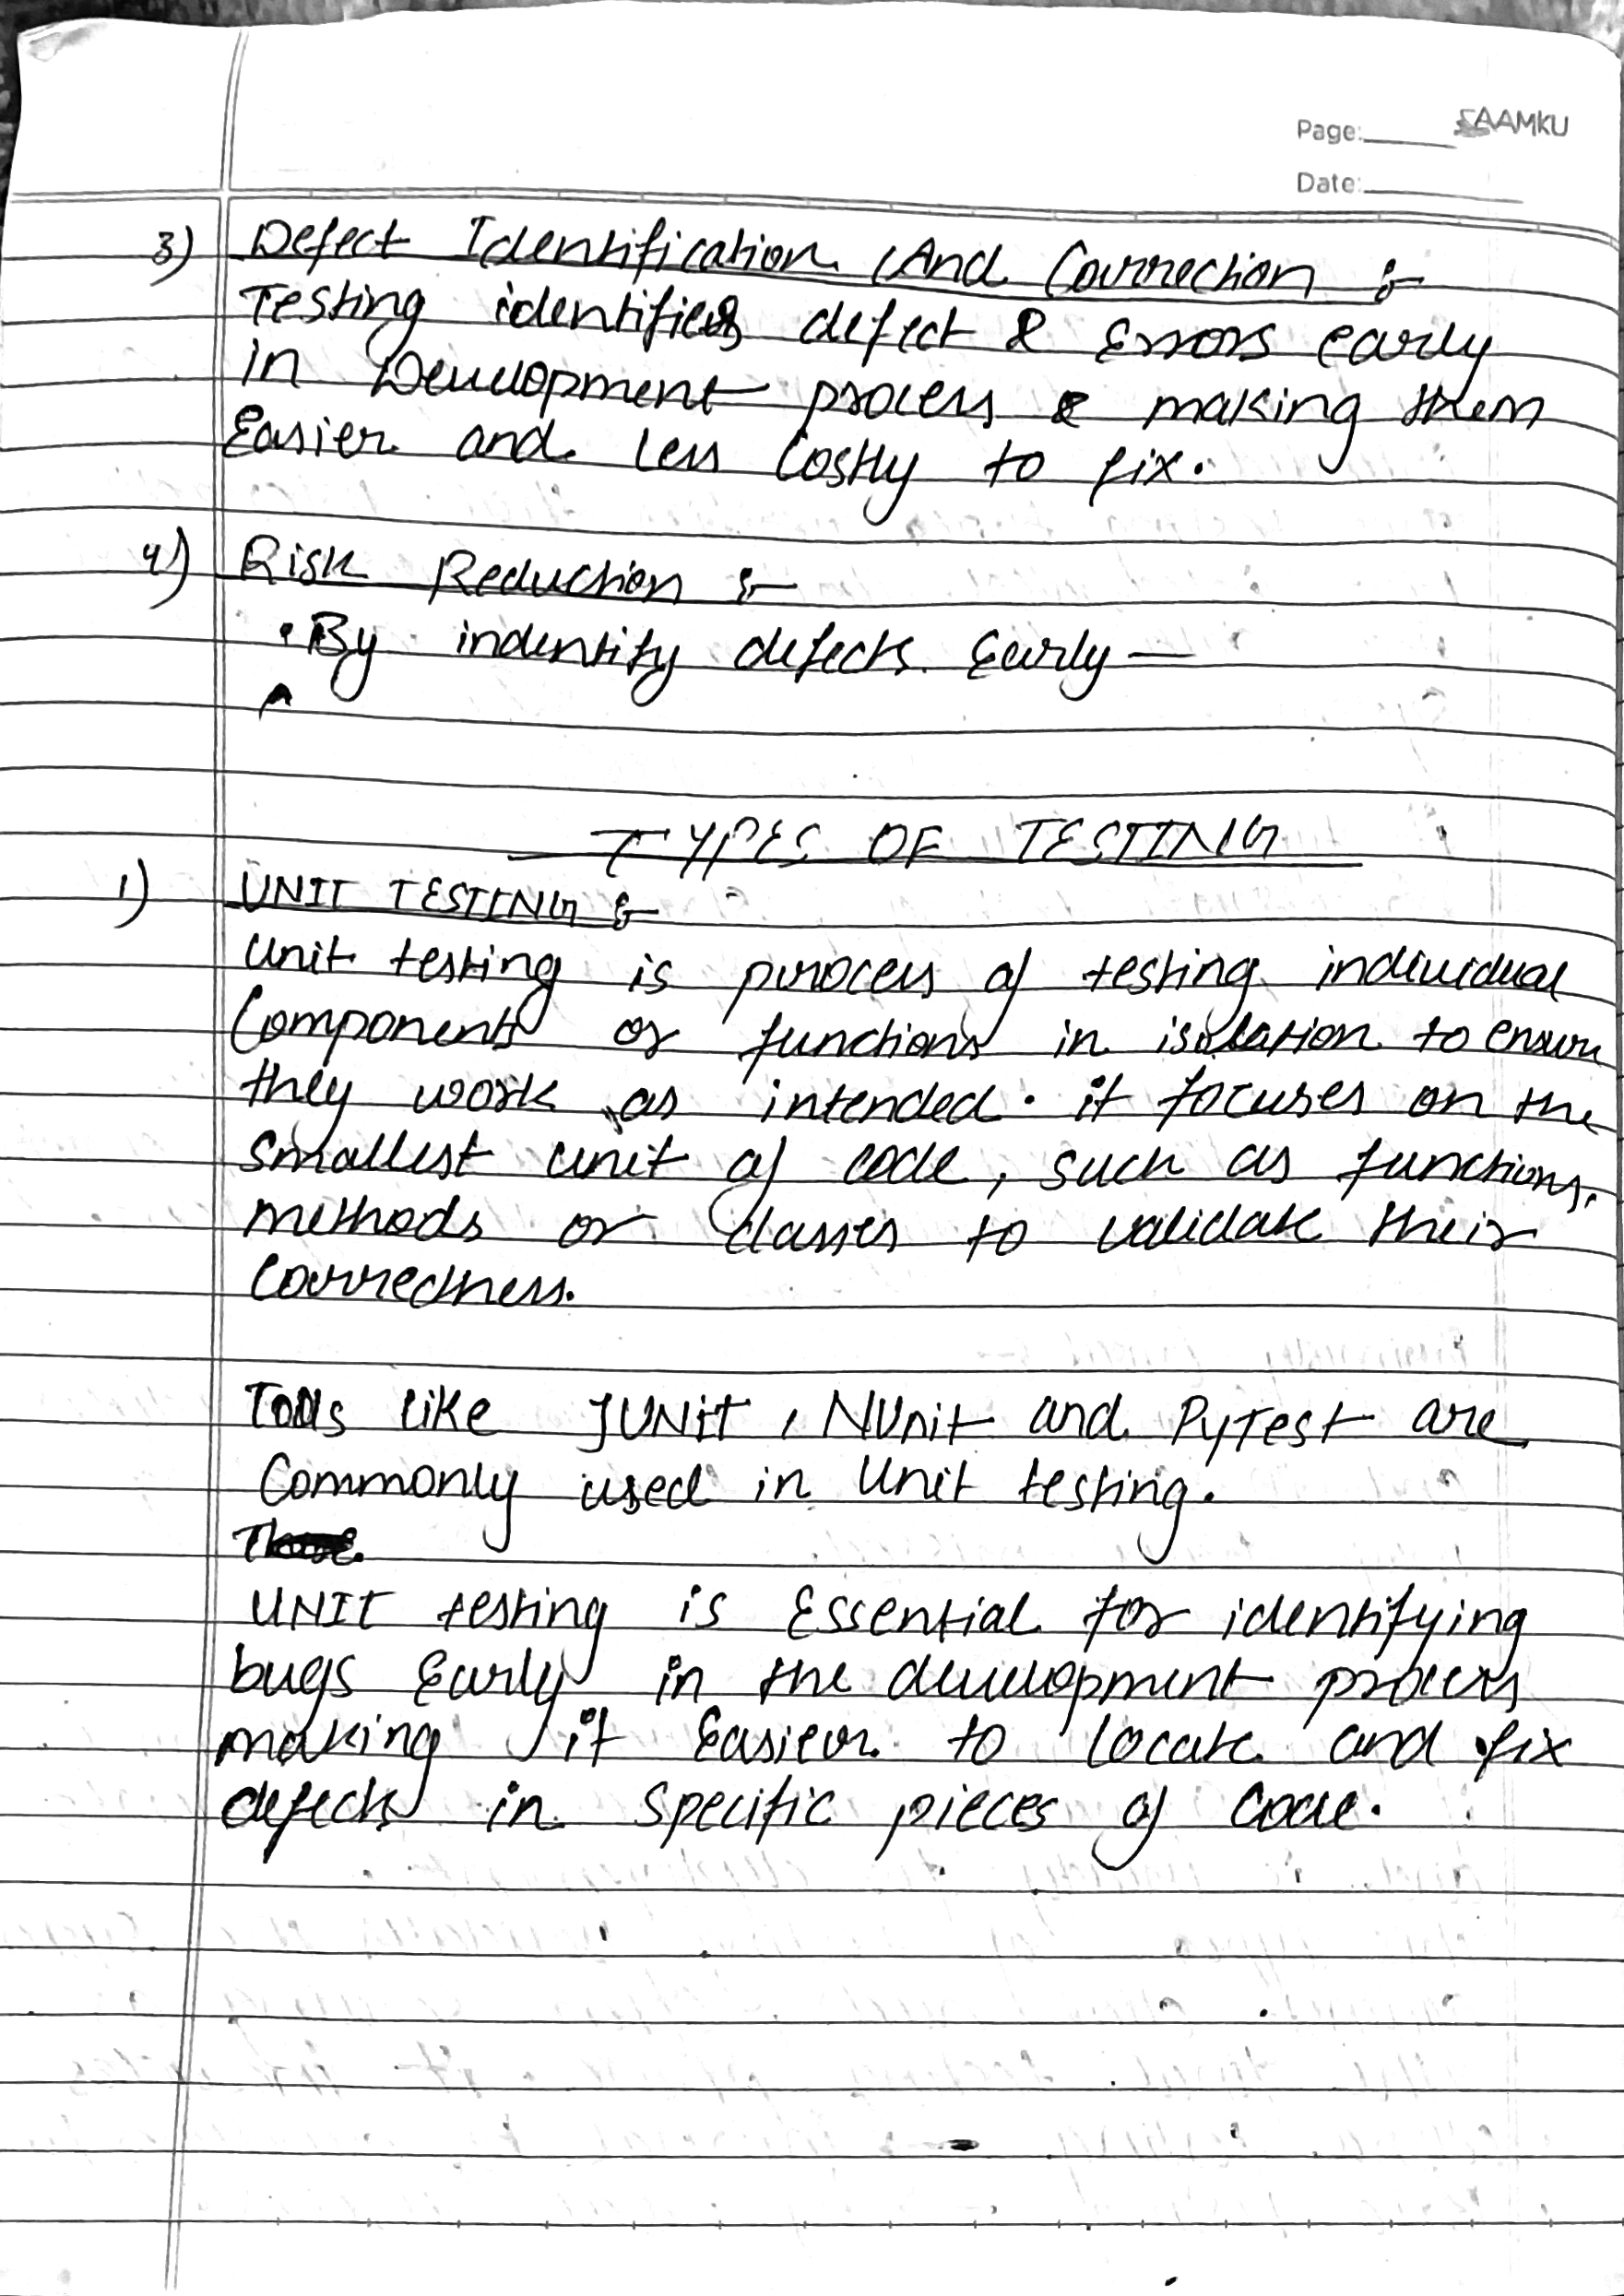 Page: SAAMKU
Date:
3) Defect Identification And Correction :-
Testing identifies defect & Errors early
in Development process & making them
Easier and Less Costly to fix.
4) Risk Reduction :-
• By indentify defects Early —
TYPES OF TESTING
1) UNIT TESTING :-
Unit testing is process of testing individual
Components or functions in isolation to ensure
they work as intended. it focuses on the
Smallest unit of code, such as functions,
methods or classes to validate their
Correctness.
Tools like JUNit, NUnit and PyTest are
Commonly used in Unit testing.
UNIT testing is Essential for identifying
bugs Early in the development process
making it Easier to locate and fix
defects in specific pieces of Code.